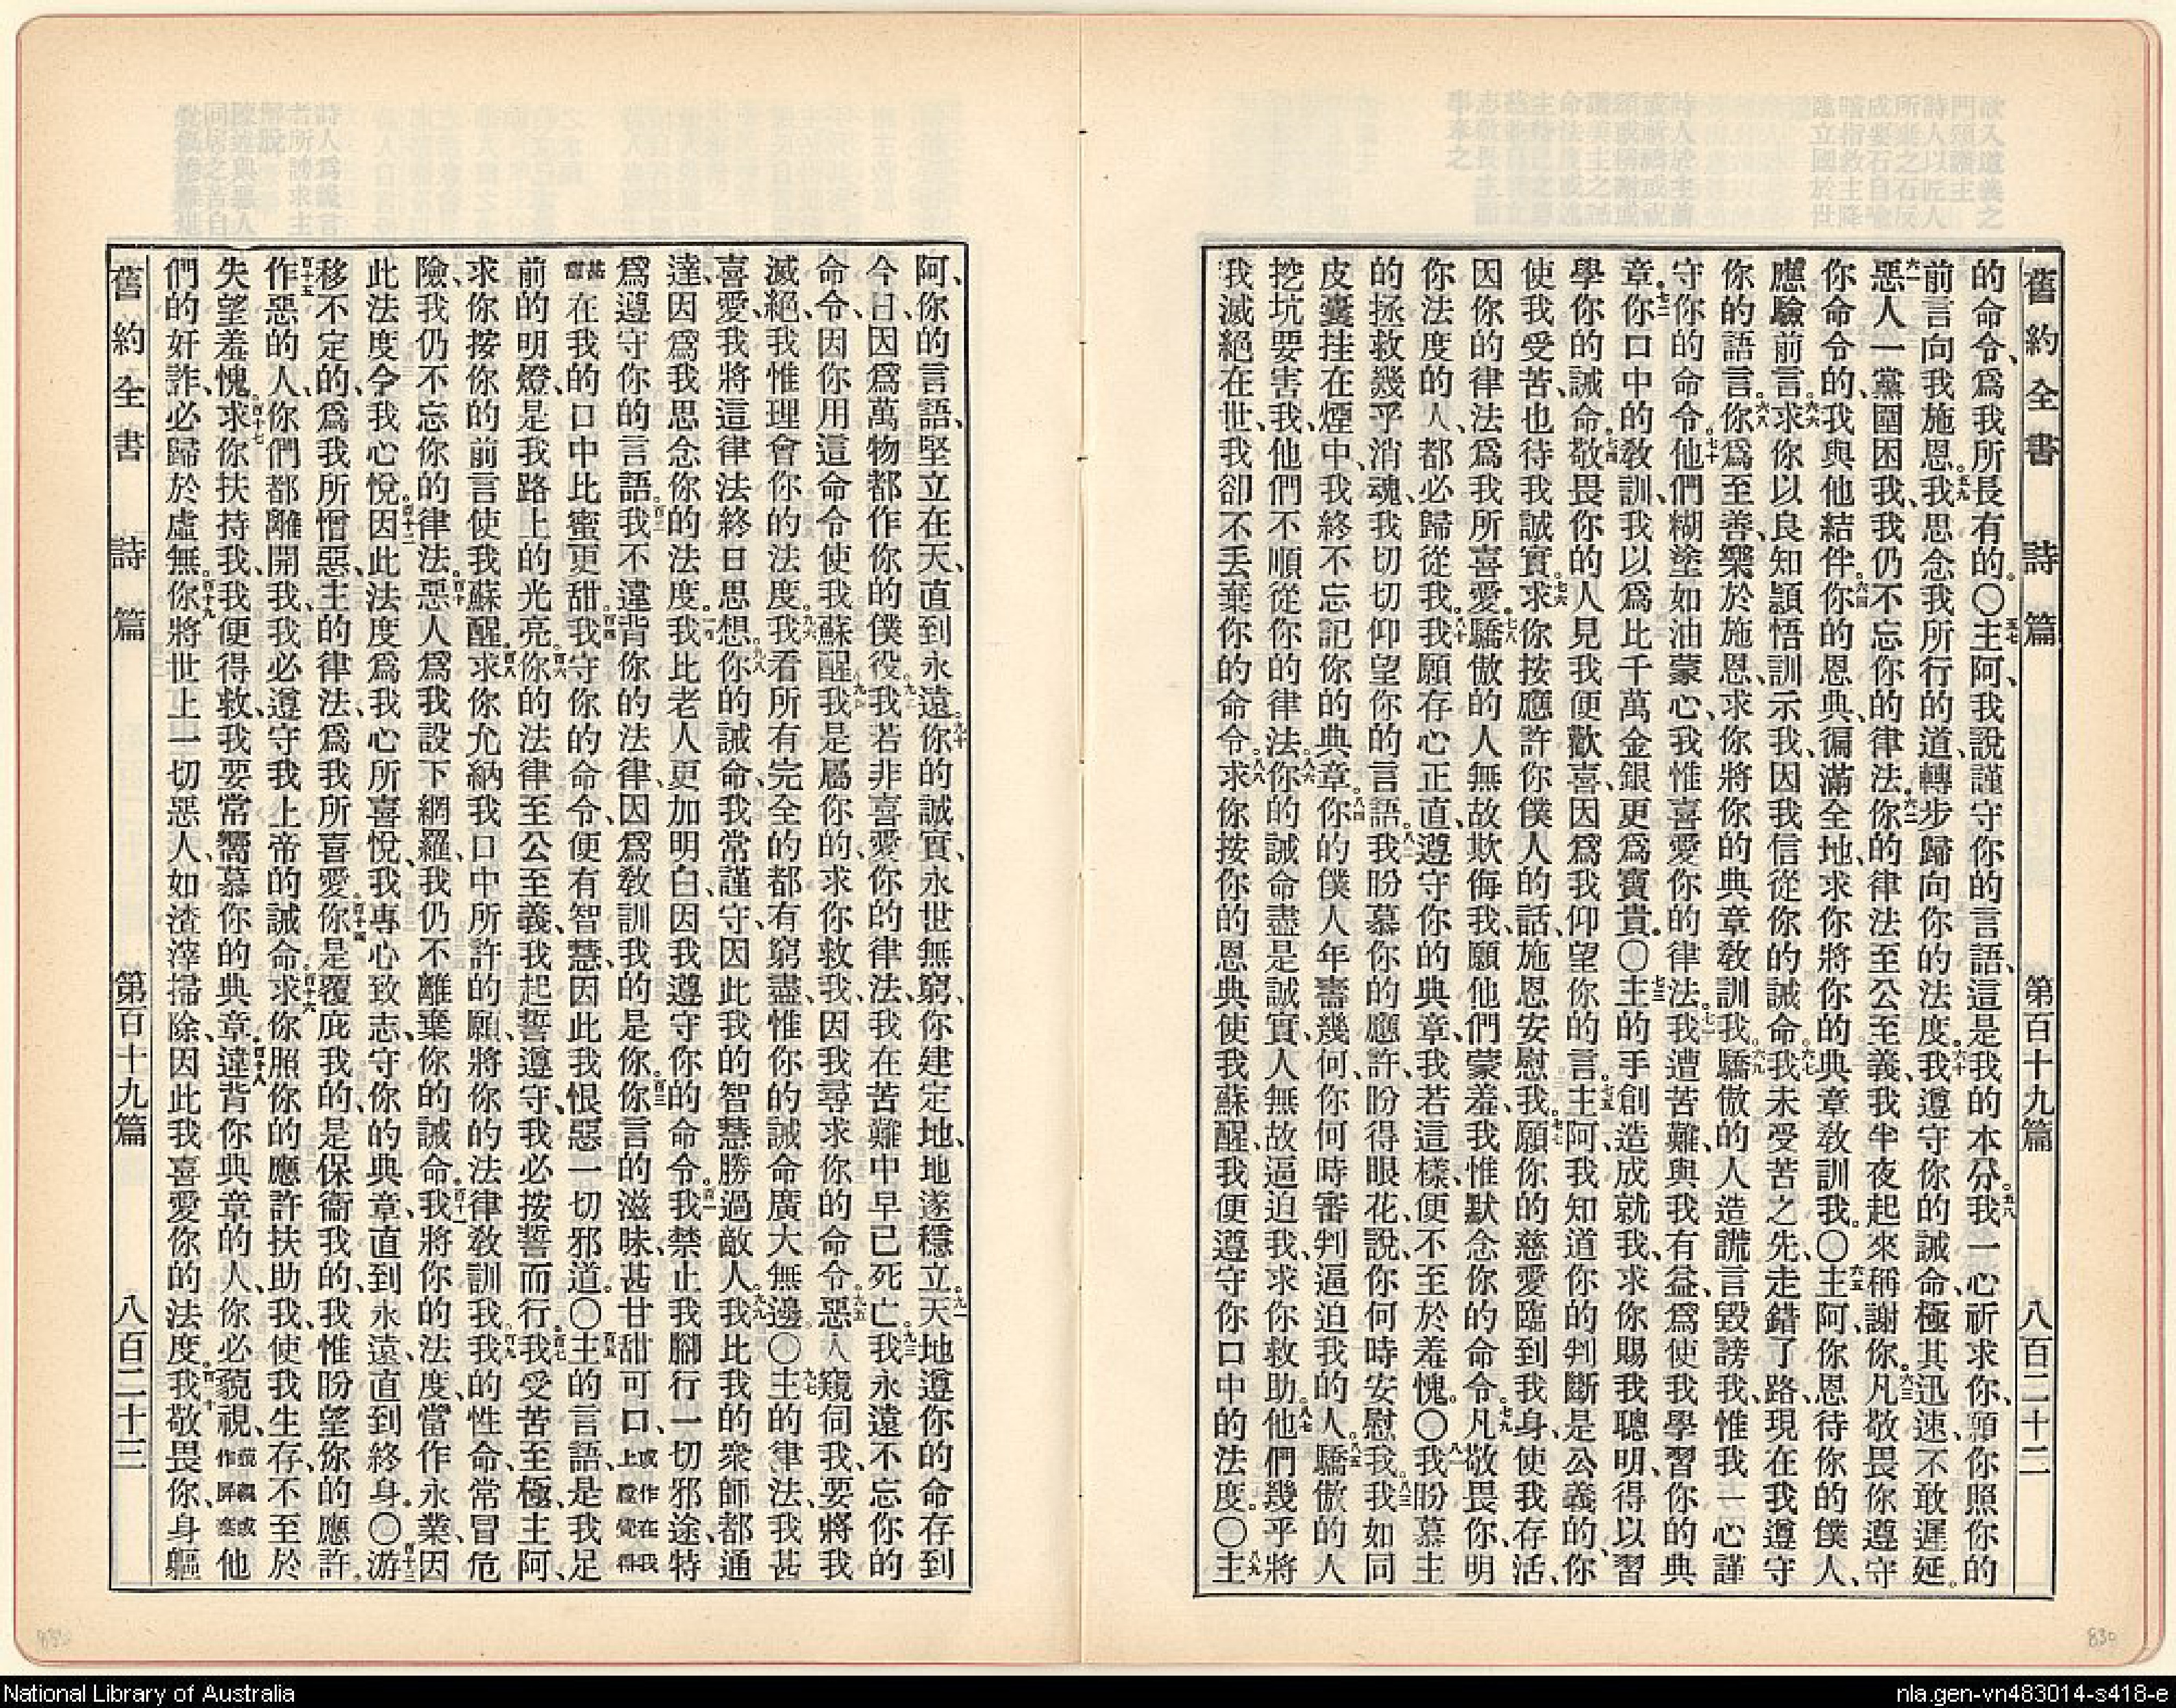 舊約全書 詩篇 第百十九篇 八百二十二
的命令、爲我所長有的。〇五七主阿、我說謹守你的言語、這是我的本分。五八我一心祈求你、願你照你的
前言向我施恩。五九我思念我所行的道、轉步歸向你的法度。六十我遵守你的誡命、極其迅速、不敢遲延。
六一惡人一黨圍困我、我仍不忘你的律法。六二你的律法至公至義、我半夜起來稱謝你。六三凡敬畏你遵守
你命令的、我與他結伴。六四你的恩典、徧滿全地、求你將你的典章教訓我。〇六五主阿、你恩待你的僕人、
應驗前言。六六求你以良知穎悟訓示我、因我信從你的誡命。六七我未受苦之先、走錯了路、現在我遵守
你的語言。六八你爲至善、樂於施恩、求你將你的典章教訓我。六九驕傲的人造謊言毀謗我、惟我一心謹
守你的命令。七十他們糊塗如油蒙心、我惟喜愛你的律法。七一我遭苦難與我有益、爲使我學習你的典
章。七二你口中的教訓、我以爲比千萬金銀更爲寶貴。〇七三主的手創造成就我、求你賜我聰明、得以習
學你的誡命。七四敬畏你的人見我便歡喜、因爲我仰望你的言。七五主阿、我知道你的判斷是公義的、你
使我受苦、也待我誠實。七六求你按應許你僕人的話、施恩安慰我。七七願你的慈愛臨到我身、使我存活、
因你的律法爲我所喜愛。七八驕傲的人無故欺侮我、願他們蒙羞、我惟默念你的命令。七九凡敬畏你、明
你法度的人、都必歸從我。八十我願存心正直、遵守你的典章、我若這樣、便不至於羞愧。〇八一我盼慕主
的拯救、幾乎消魂、我切切仰望你的言語。八二我盼慕你的應許、盼得眼花、說、你何時安慰我。八三我如同
皮囊挂在煙中、我終不忘記你的典章。八四你的僕人年壽幾何、你何時審判逼迫我的人。八五驕傲的人
挖坑要害我、他們不順從你的律法。八六你的誡命盡是誠實、人無故逼迫我、求你救助。八七他們幾乎將
我滅絕在世、我卻不丢棄你的命令。八八求你按你的恩典使我蘇醒、我便遵守你口中的法度。〇八九主
阿、你的言語、堅立在天、直到永遠。九十你的誠實、永世無窮、你建定地、地遂穩立。九一天地遵你的命存到
今日、因爲萬物都作你的僕役。九二我若非喜愛你的律法、我在苦難中早已死亡。九三我永遠不忘你的
命令、因你用這命令使我蘇醒。九四我是屬你的、求你救我、因我尋求你的命令。九五惡人窺伺我、要將我
滅絕、我惟理會你的法度。九六我看所有完全的都有窮盡、惟你的誡命廣大無邊。〇九七主的律法、我甚
喜愛、我將這律法終日思想。九八你的誡命、我常謹守、因此我的智慧勝過敵人。九九我比我的衆師都通
達、因爲我思念你的法度。一百我比老人更加明白、因我遵守你的命令。百一我禁止我腳行一切邪途、特
爲遵守你的言語。百二我不違背你的法律、因爲教訓我的是你。百三你言的滋味、甚甘甜可口、或作在我上膛覺得甚
甜在我的口中比蜜更甜。百四我守你的命令、便有智慧、因此我恨惡一切邪道。〇百五主的言語、是我足
前的明燈、是我路上的光亮。百六你的法律至公至義、我起誓遵守、我必按誓而行。百七我受苦至極、主阿、
求你按你的前言使我蘇醒。百八求你允納我口中所許的願、將你的法律教訓我。百九我的性命、常冒危
險、我仍不忘你的律法。百十惡人爲我設下網羅、我仍不離棄你的誡命。百十一我將你的法度、當作永業、因
此法度令我心悅。百十二因此法度爲我心所喜悅、我專心致志、守你的典章、直到永遠、直到終身。〇百十三游
移不定的、爲我所憎惡、主的律法、爲我所喜愛。百十四你是覆庇我的、是保衞我的、我惟盼望你的應許。
百十五作惡的人、你們都離開我、我必遵守我上帝的誡命。百十六求你照你的應許扶助我、使我生存、不至於
失望羞愧。百十七求你扶持我、我便得救、我要常嚮慕你的典章。百十八違背你典章的人、你必藐視、藐視或作屏棄他
們的奸詐、必歸於虛無。百十九你將世上一切惡人、如渣滓掃除、因此我喜愛你的法度。百二十我敬畏你、身軀
舊約全書 詩篇 第百十九篇 八百二十三
830
National Library of Australia
nla.gen-vn483014-s418-e